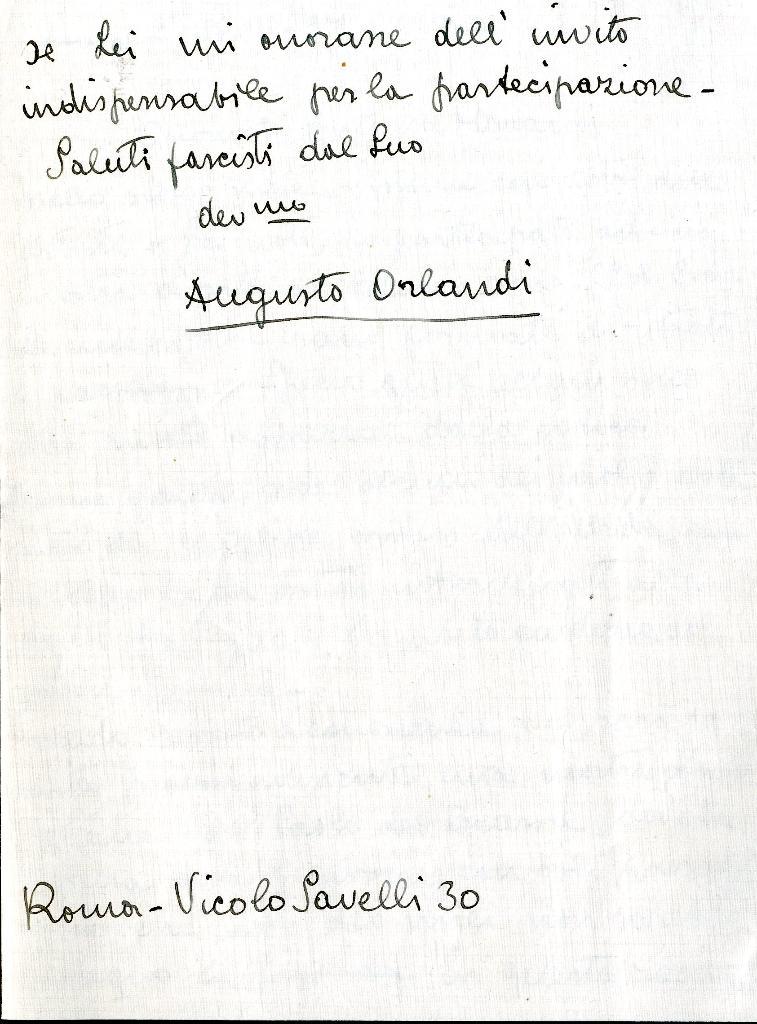 se Lei mi onorasse dell' invito
indispensabile per la partecipazione -
Saluti fascisti dal Suo
dev mo
Augusto Orlandi
Roma - Vicolo Savelli 30